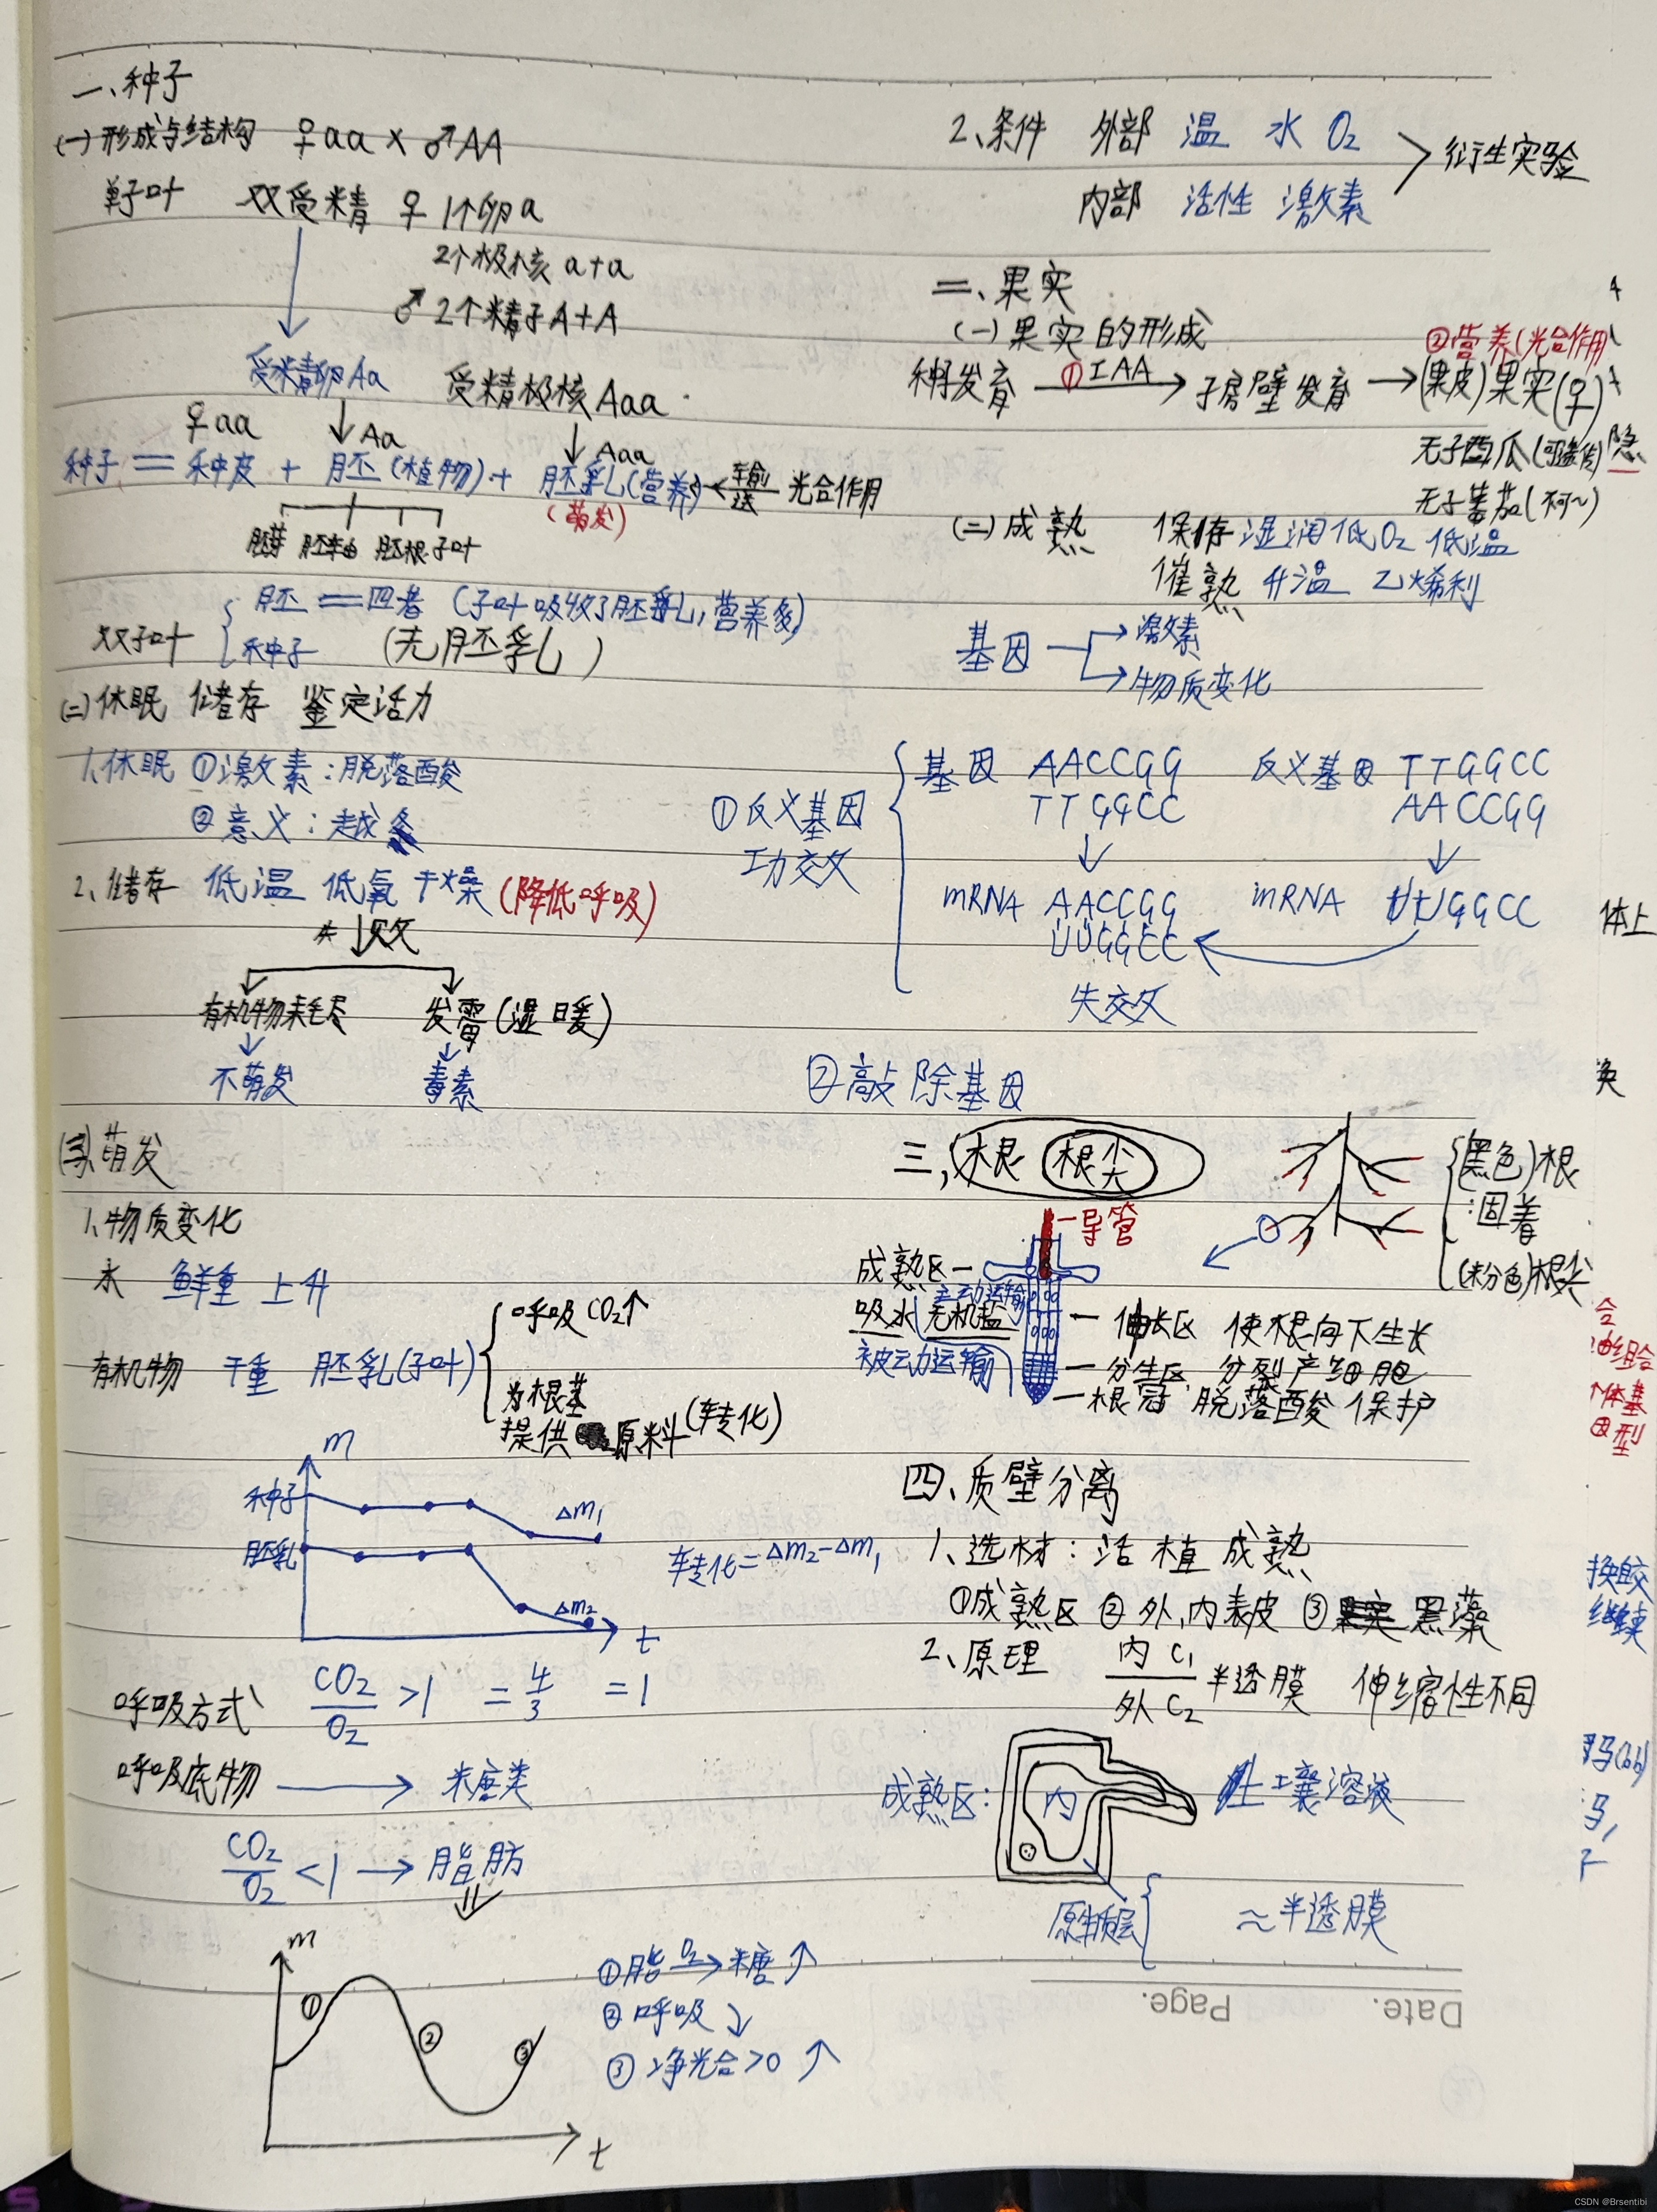 一、种子
(一)形成与结构 ♀aa×♂AA
单子叶 双受精 ♀1个卵a
2个极核 a+a
♂2个精子A+A
受精卵Aa 受精极核Aaa
♀aa Aa Aaa
种子=种皮+胚(植物)+胚乳(营养)←输送 光合作用
(萌发)
胚芽 胚轴 胚根 子叶
双子叶 胚=四者(子叶吸收了胚乳,营养多)
种子 (无胚乳)
(二)休眠 储存 鉴定活力
1、休眠 ①激素:脱落酸
②意义:越冬
2、储存 低温 低氧 干燥(降低呼吸)
失败
有机物耗尽 发霉(湿暖)
不萌发 毒素
(三)、萌发
1、物质变化
水 鲜重 上升
有机物 干重 胚乳(子叶)
呼吸CO₂↑
为根茎
提供原料(转化)
m
种子 △m₁
胚乳 △m₂
t
转化=△m₂-△m₁
呼吸方式 CO₂/O₂ >1 =4/3 =1
呼吸底物 → 糖类
CO₂/O₂ <1 → 脂肪
m
① ② ③
t
①脂 O₂→ 糖↑
②呼吸↓
③净光合>0 ↑
2、条件 外部 温 水 O₂
内部 活性 激素
衍生实验
二、果实
(一)果实的形成
②营养(光合作用
种子发育 ①IAA→ 子房壁发育 →(果皮)果实(♀)
无子西瓜(可遗传)
无子蕃茄(不可~)
(二)成熟 保存 湿润低O₂ 低温
催熟 升温 乙烯利
基因 → 激素
→ 物质变化
①反义基因
功效
基因 AACCGG 反义基因 TTGGCC
TTGGCC AACCGG
mRNA AACCGG mRNA UUGGCC
UUGGCC
失效
②敲除基因
三、根 根尖
(黑色)根
:固着
(粉色)根尖
导管
成熟区
主动运输
吸水 无机盐
被动运输
伸长区 使根向下生长
分生区 分裂产细胞
根冠 脱落酸 保护
四、质壁分离
1、选材:活 植 成熟
①成熟区 ②外,内表皮 ③黑藻
2、原理 内C₁/外C₂ 半透膜 伸缩性不同
成熟区: 内 土壤溶液
原生质层 ≈半透膜
Date. Page.
隐
体上
换
组合
体基
因型
继续
CSDN @Brsentibi